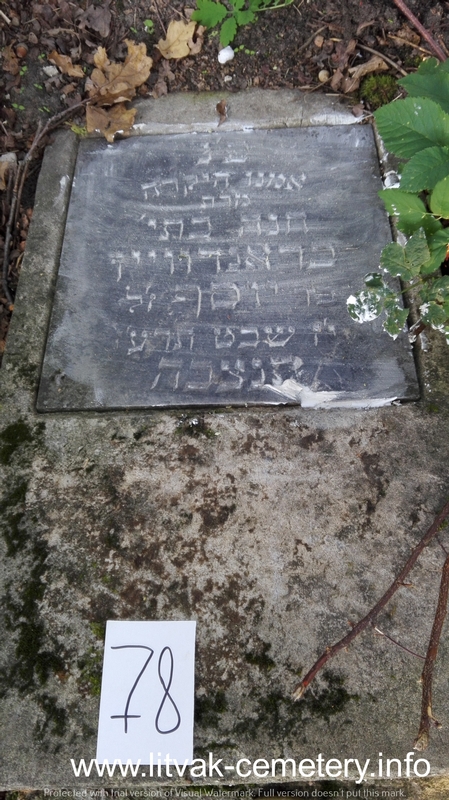 פ נ
אמנו היקרה
מרת
חנה בת ר'
יוסף ז"ל
שבט תרע
תנצבה
78
www.litvak-cemetery.info
Protected with trial version of Visual Watermark. Full version doesn't put this mark.